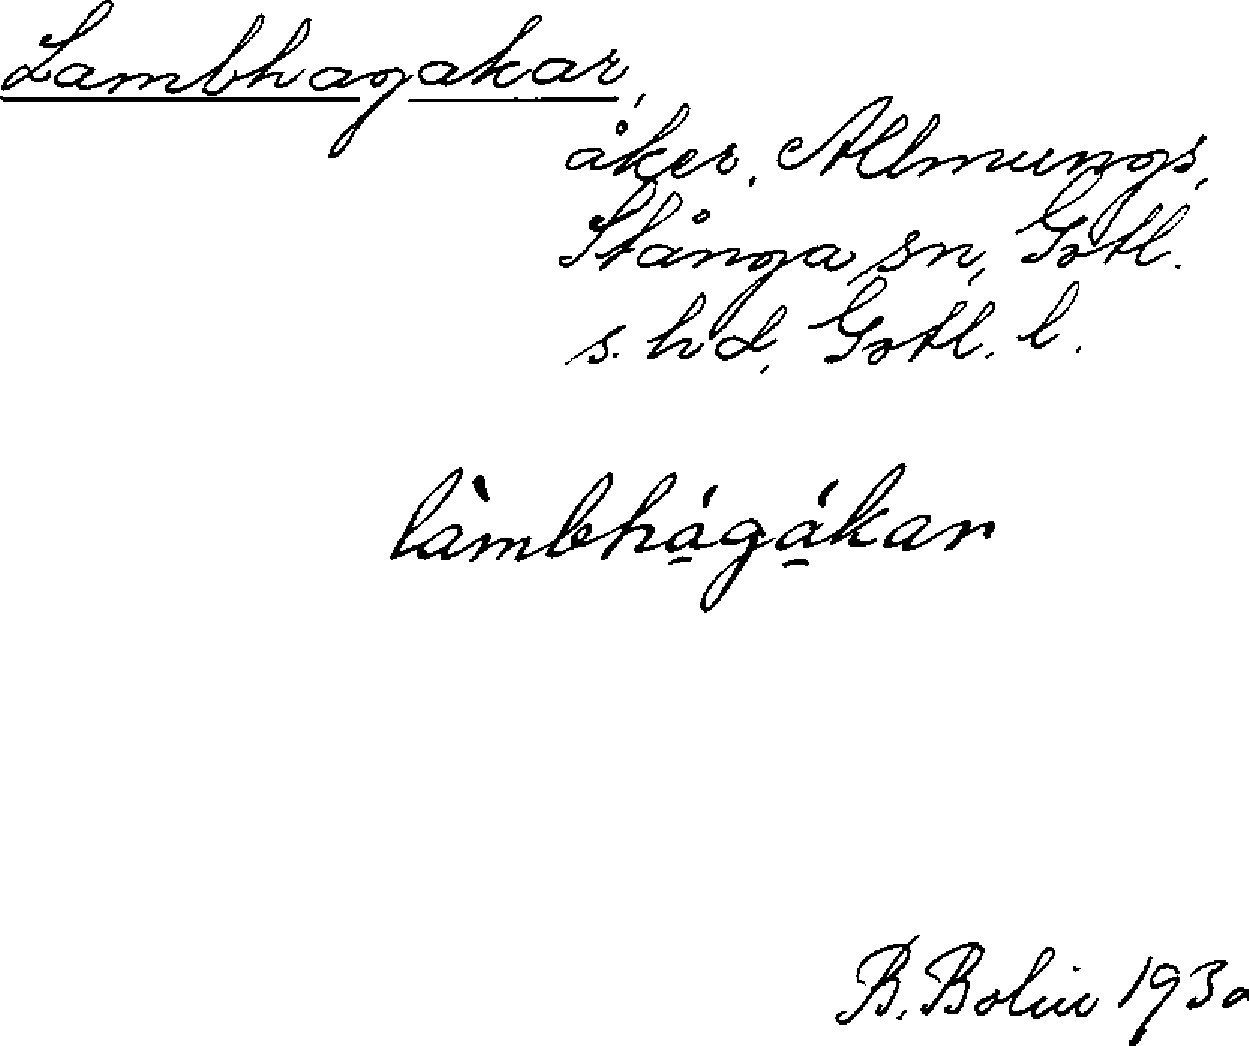 Lambhagakar,
åker, Allmungs,
Stånga sn, Gotl.
s. hd, Gotl. l.
làmbhá̱gá̱kar
B. Bolin 1930